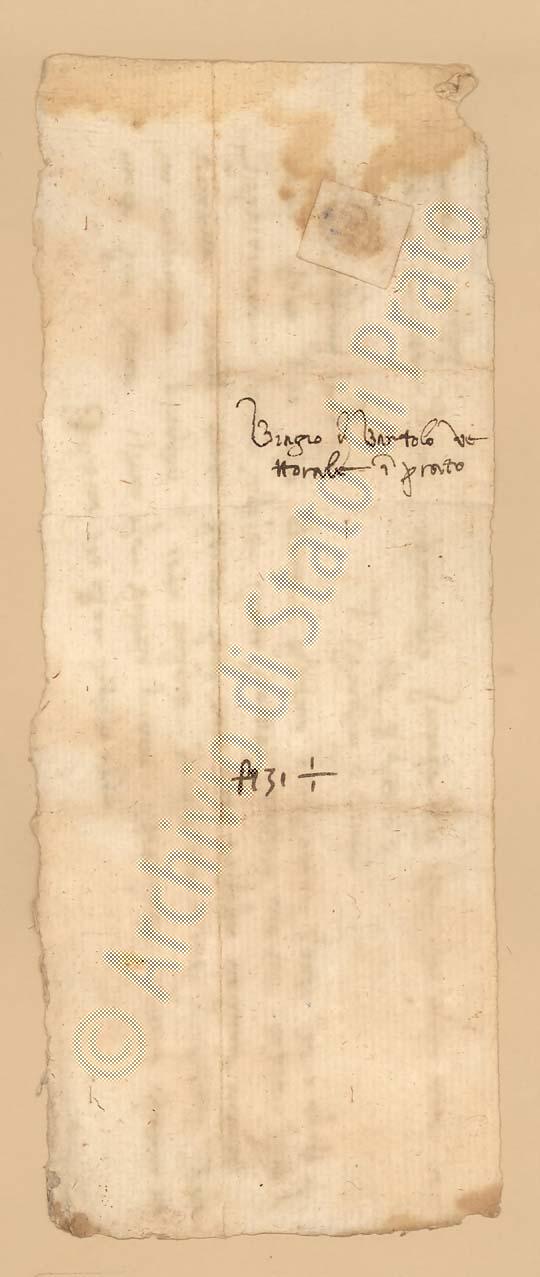 Biagio di Bartolo ve
tturale in prato
© Archivio di Stato di Prato